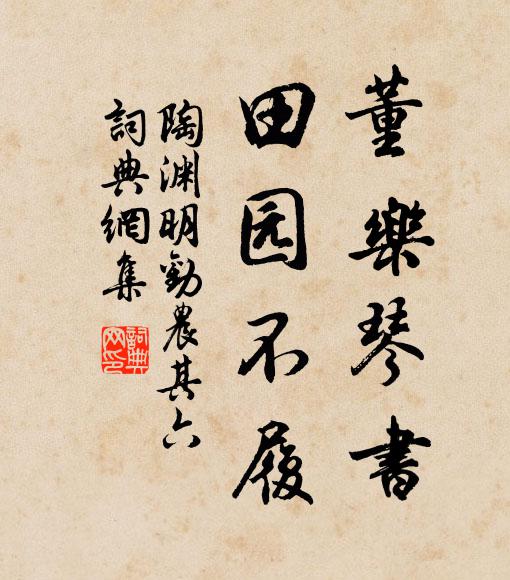 董樂琴書
田园不履
陶渊明勸農其六
詞典網集
詞典
网印